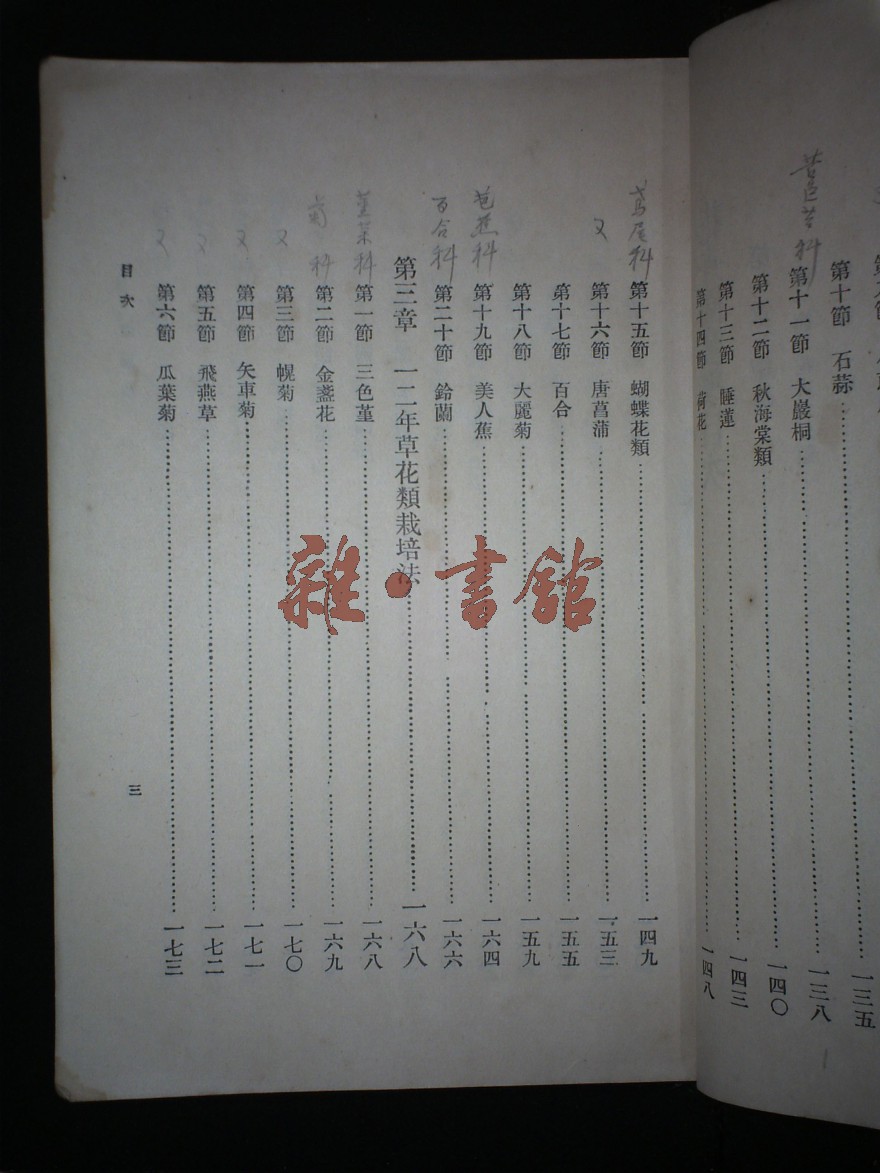 第十節　石蒜………一三五
苦苣苔科
第十一節　大巖桐………一三八
第十二節　秋海棠類………一四〇
第十三節　睡蓮………一四三
第十四節　荷花………一四八
鳶尾科
第十五節　蝴蝶花類………一四九
又
第十六節　唐菖蒲………一五三
第十七節　百合………一五五
第十八節　大麗菊………一五九
芭蕉科
第十九節　美人蕉………一六四
百合科
第二十節　鈴蘭………一六六
第三章　一二年草花類栽培法………一六八
堇菜科
第一節　三色堇………一六八
菊科
第二節　金盞花………一六九
又
第三節　幌菊………一七〇
又
第四節　矢車菊………一七一
又
第五節　飛燕草………一七二
又
第六節　瓜葉菊………一七三
目次
三
雜·書館